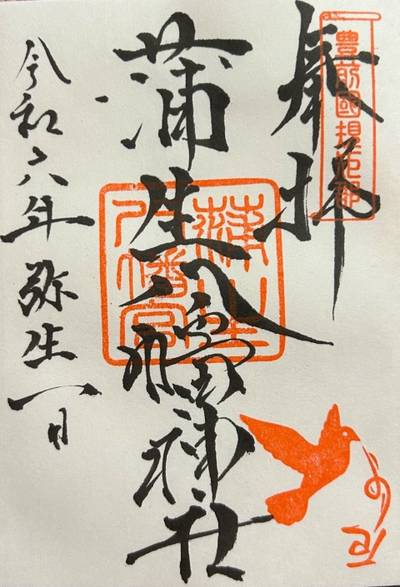 豊前國規矩郡
奉拝
蒲生八幡神社
蒲生
八幡宮
令和六年弥生一日